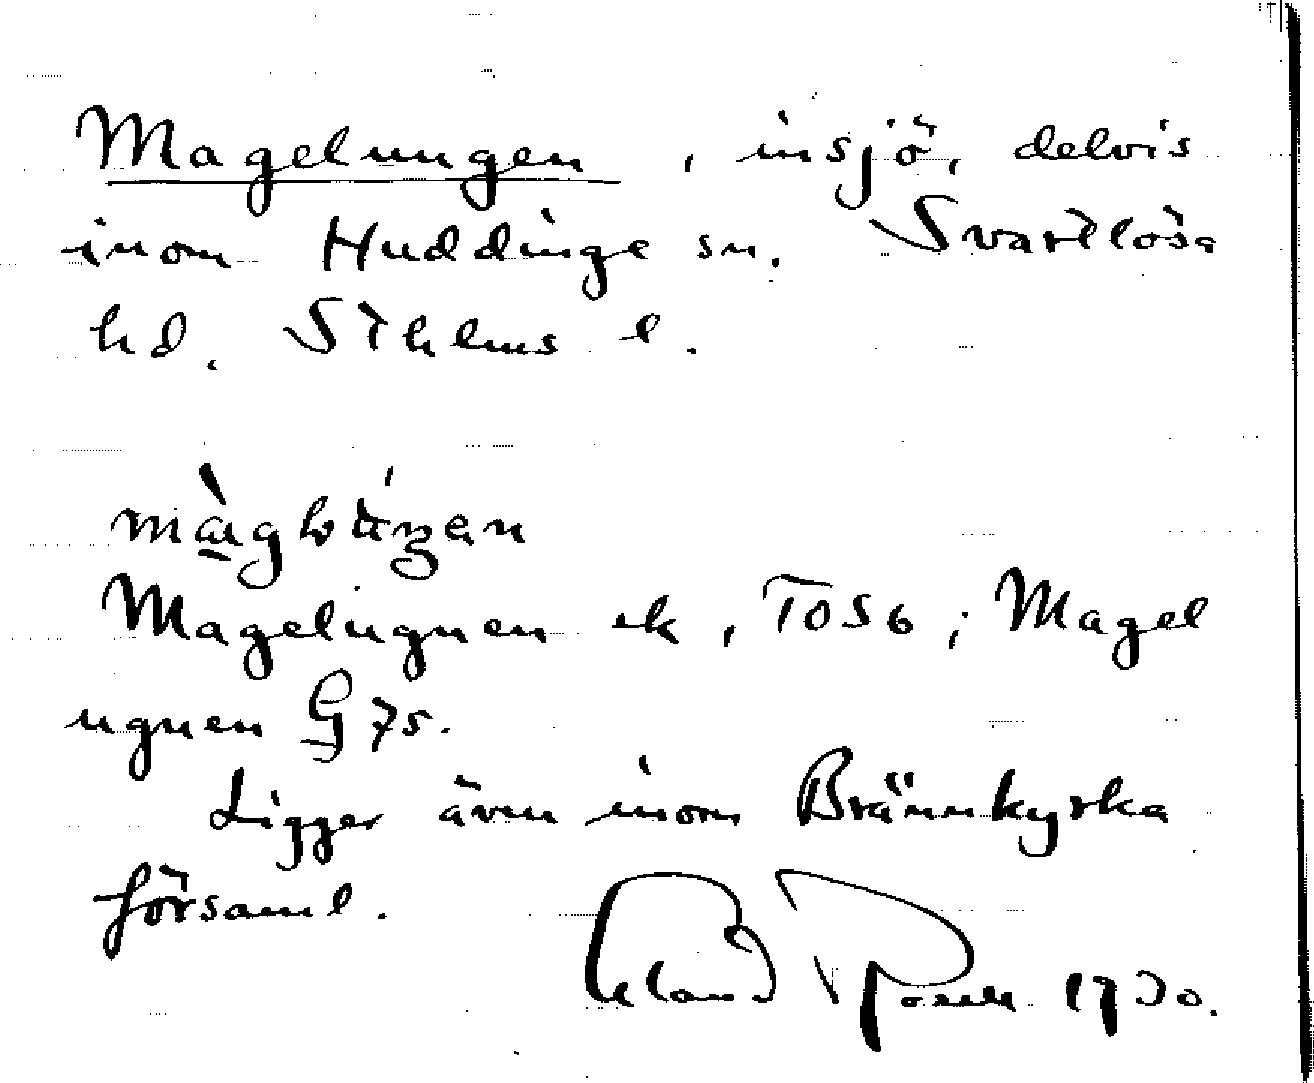 Magelungen, insjö, delvis
inom Huddinge sn. Svartlösa
hd. Sthlms l.
Magelugnen ek, TOS6; Magel
ugnen G 75.
Ligger även inom Brännkyrka
församl.
1930.